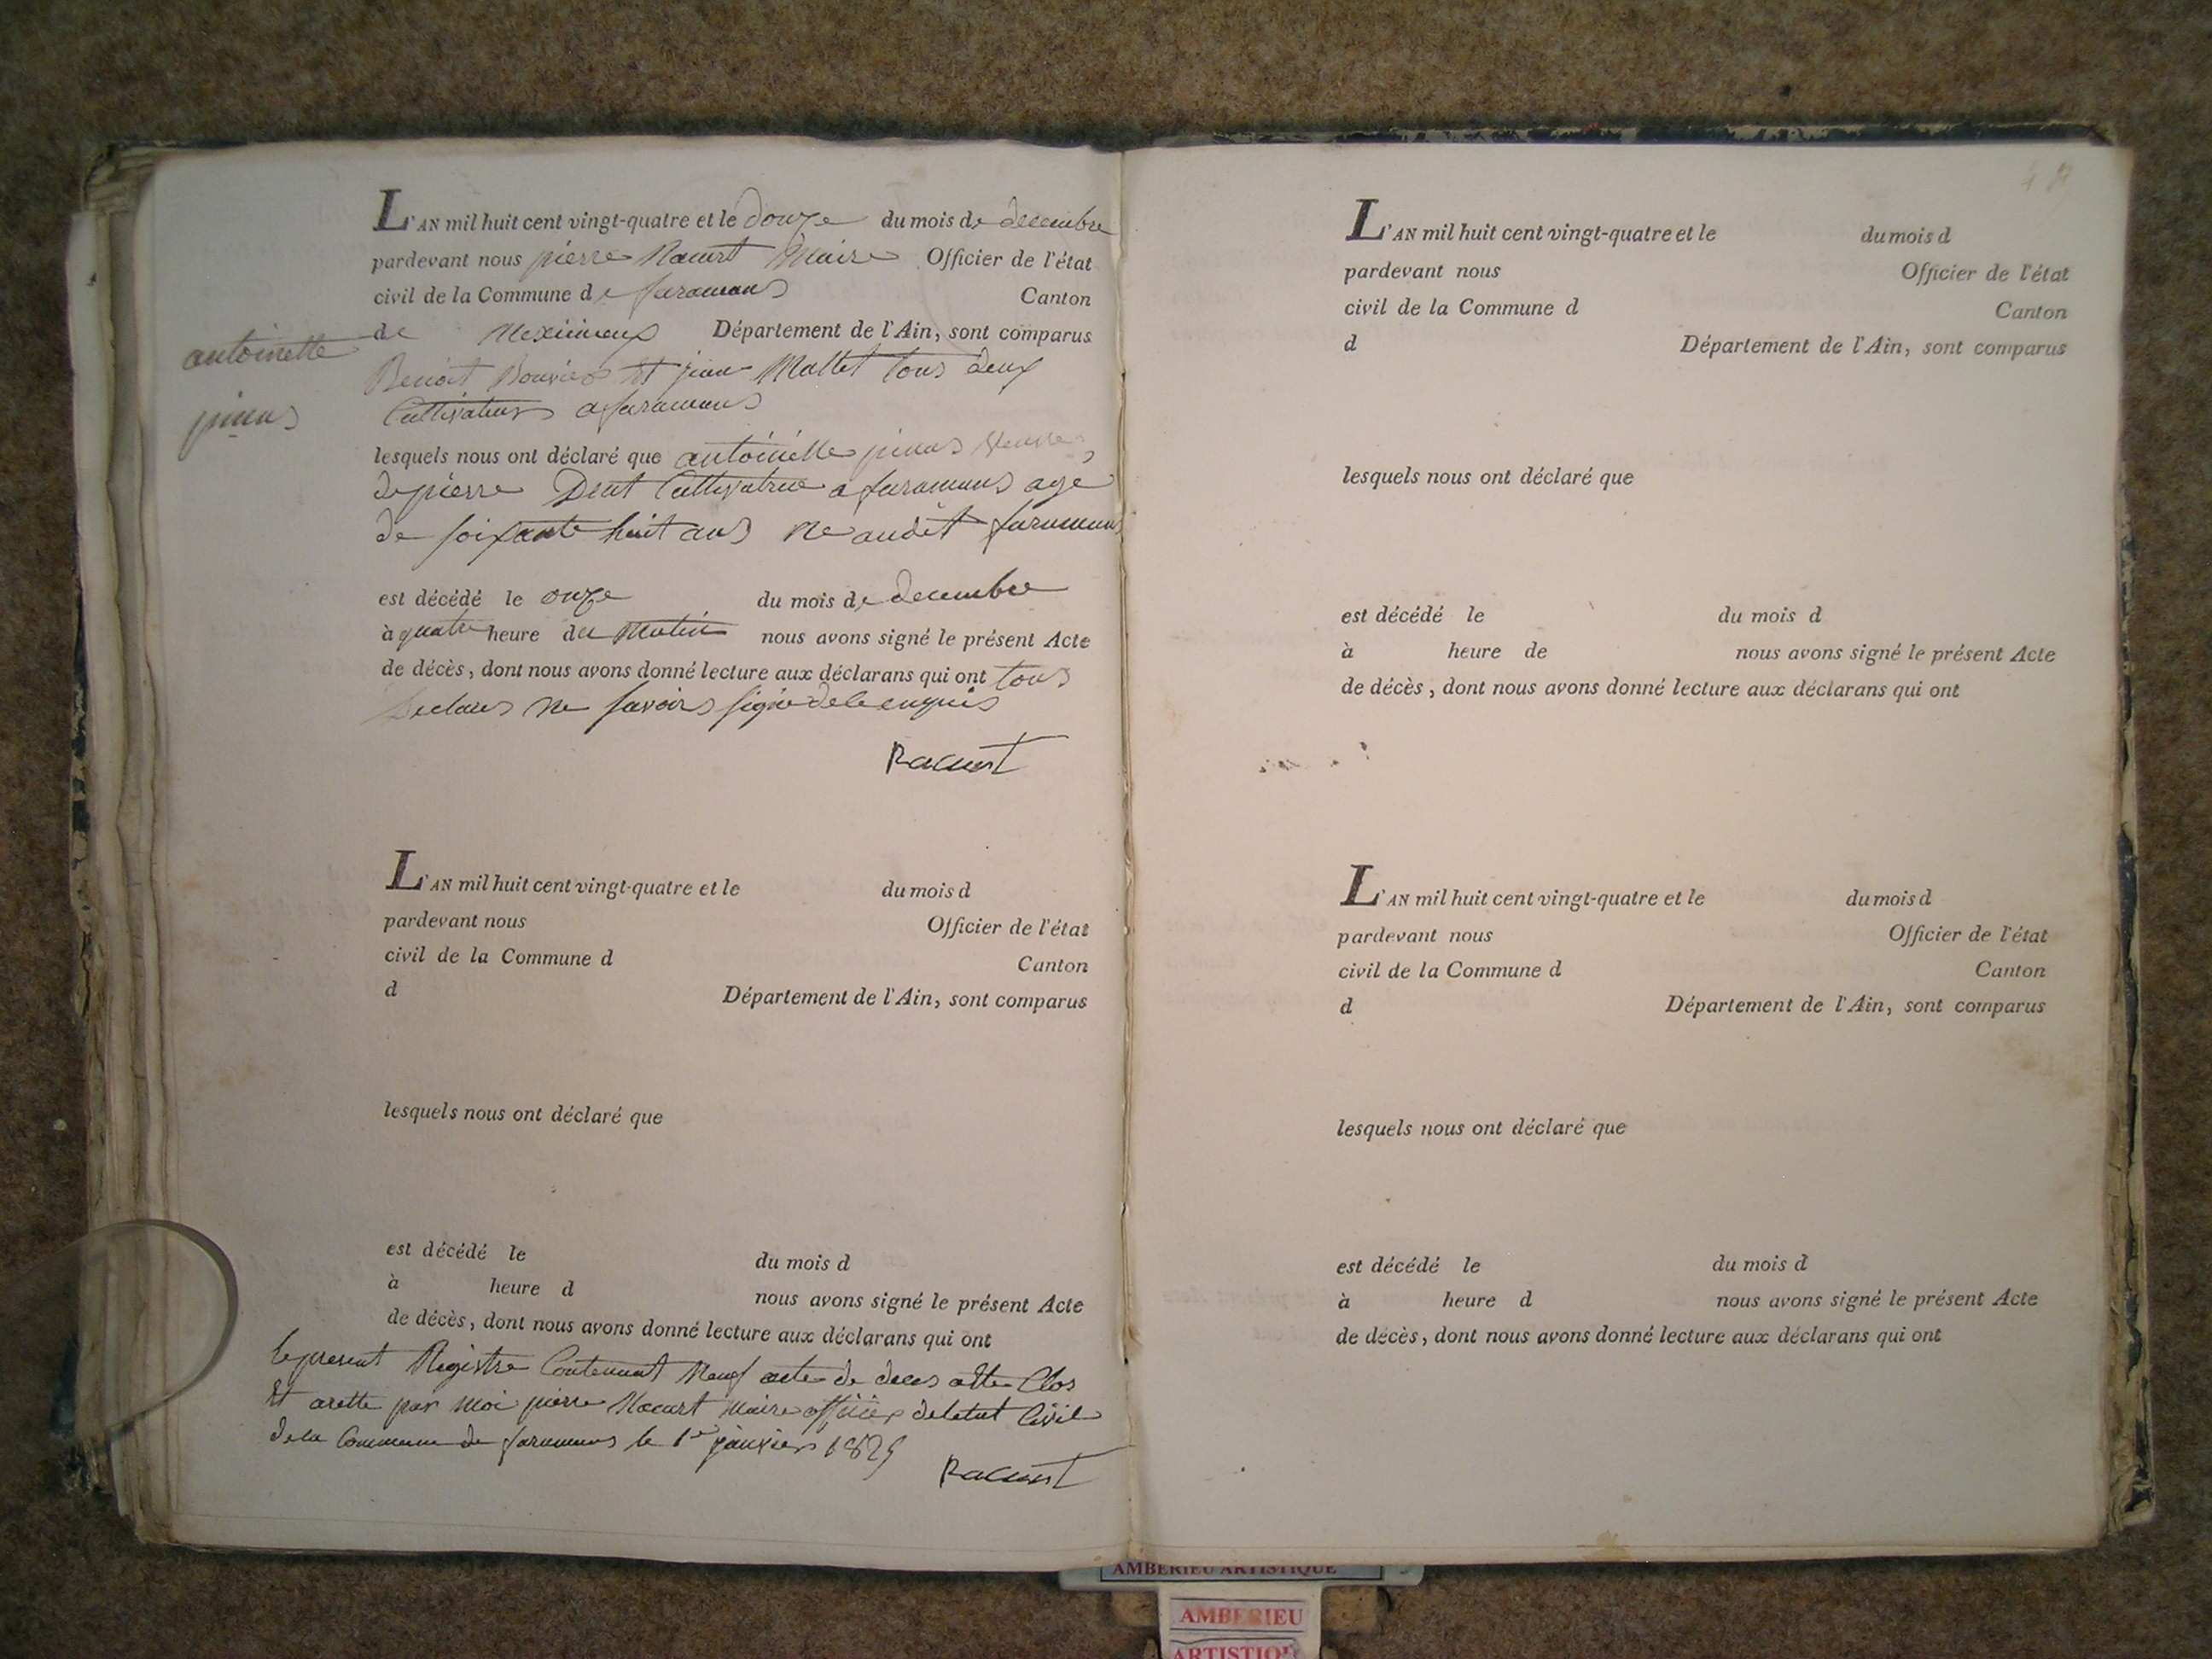 L'AN mil huit cent vingt-quatre et le douze du mois de decembre
pardevant nous pierre Racurt Maire Officier de l'état
civil de la Commune de faramans Canton
de Meximieux Département de l'Ain, sont comparus
antoinette
Benoit Bouvier et jean Mallet tous deux
Cultivateurs a faramans
lesquels nous ont déclaré que antoinette veuve
de pierre Cultivatrice a faramans age
de soixante huit ans né audit faramans
est décédé le onze du mois de decembre
à quatre heure du Matin nous avons signé le présent Acte
de décès, dont nous avons donné lecture aux déclarans qui ont tous
ne savoir signé de ce enquis
Racurt
L'AN mil huit cent vingt-quatre et le du mois d
pardevant nous Officier de l'état
civil de la Commune d Canton
d Département de l'Ain, sont comparus
lesquels nous ont déclaré que
est décédé le du mois d
à heure d nous avons signé le présent Acte
de décès, dont nous avons donné lecture aux déclarans qui ont
le present Registre Contenant Neuf acte de deces Clos
Et arette par moi pierre Racurt Maire officier de letat Civil
de la Commune de faramans le 1er janvier 1825
Racurt
L'AN mil huit cent vingt-quatre et le du mois d
pardevant nous Officier de l'état
civil de la Commune d Canton
d Département de l'Ain, sont comparus
lesquels nous ont déclaré que
est décédé le du mois d
à heure de nous avons signé le présent Acte
de décès, dont nous avons donné lecture aux déclarans qui ont
L'AN mil huit cent vingt-quatre et le du mois d
pardevant nous Officier de l'état
civil de la Commune d Canton
d Département de l'Ain, sont comparus
lesquels nous ont déclaré que
est décédé le du mois d
à heure d nous avons signé le présent Acte
de décès, dont nous avons donné lecture aux déclarans qui ont
AMBERIEU ARTISTIQUE
AMBERIEU
ARTISTIQUE